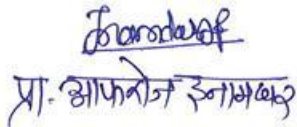 प्रा. आफरोज इनामदार